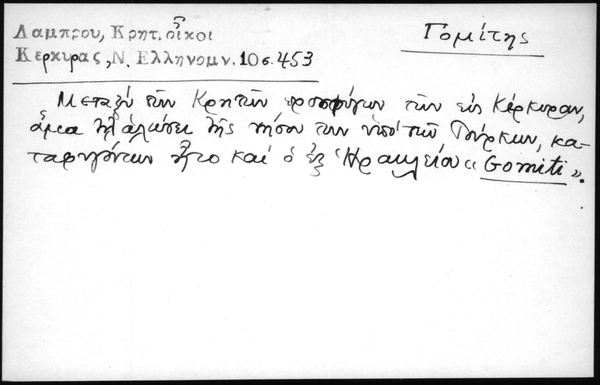 Λαμπρου, Κρητ. οἶκοι
Κερκυρας, Ν. Ελληνομν. 10 σ. 453
Γομίτης
Μεταξὺ τῶν Κρητῶν προσφύγων τῶν εἰς Κέρκυραν,
ἅμα τῇ ἁλώσει τῆς νήσου των ὑπὸ τῶν Τούρκων, κα-
ταφυγόντων ἦτο καὶ ὁ ἐξ Ἡρακλείου « Gomiti ».